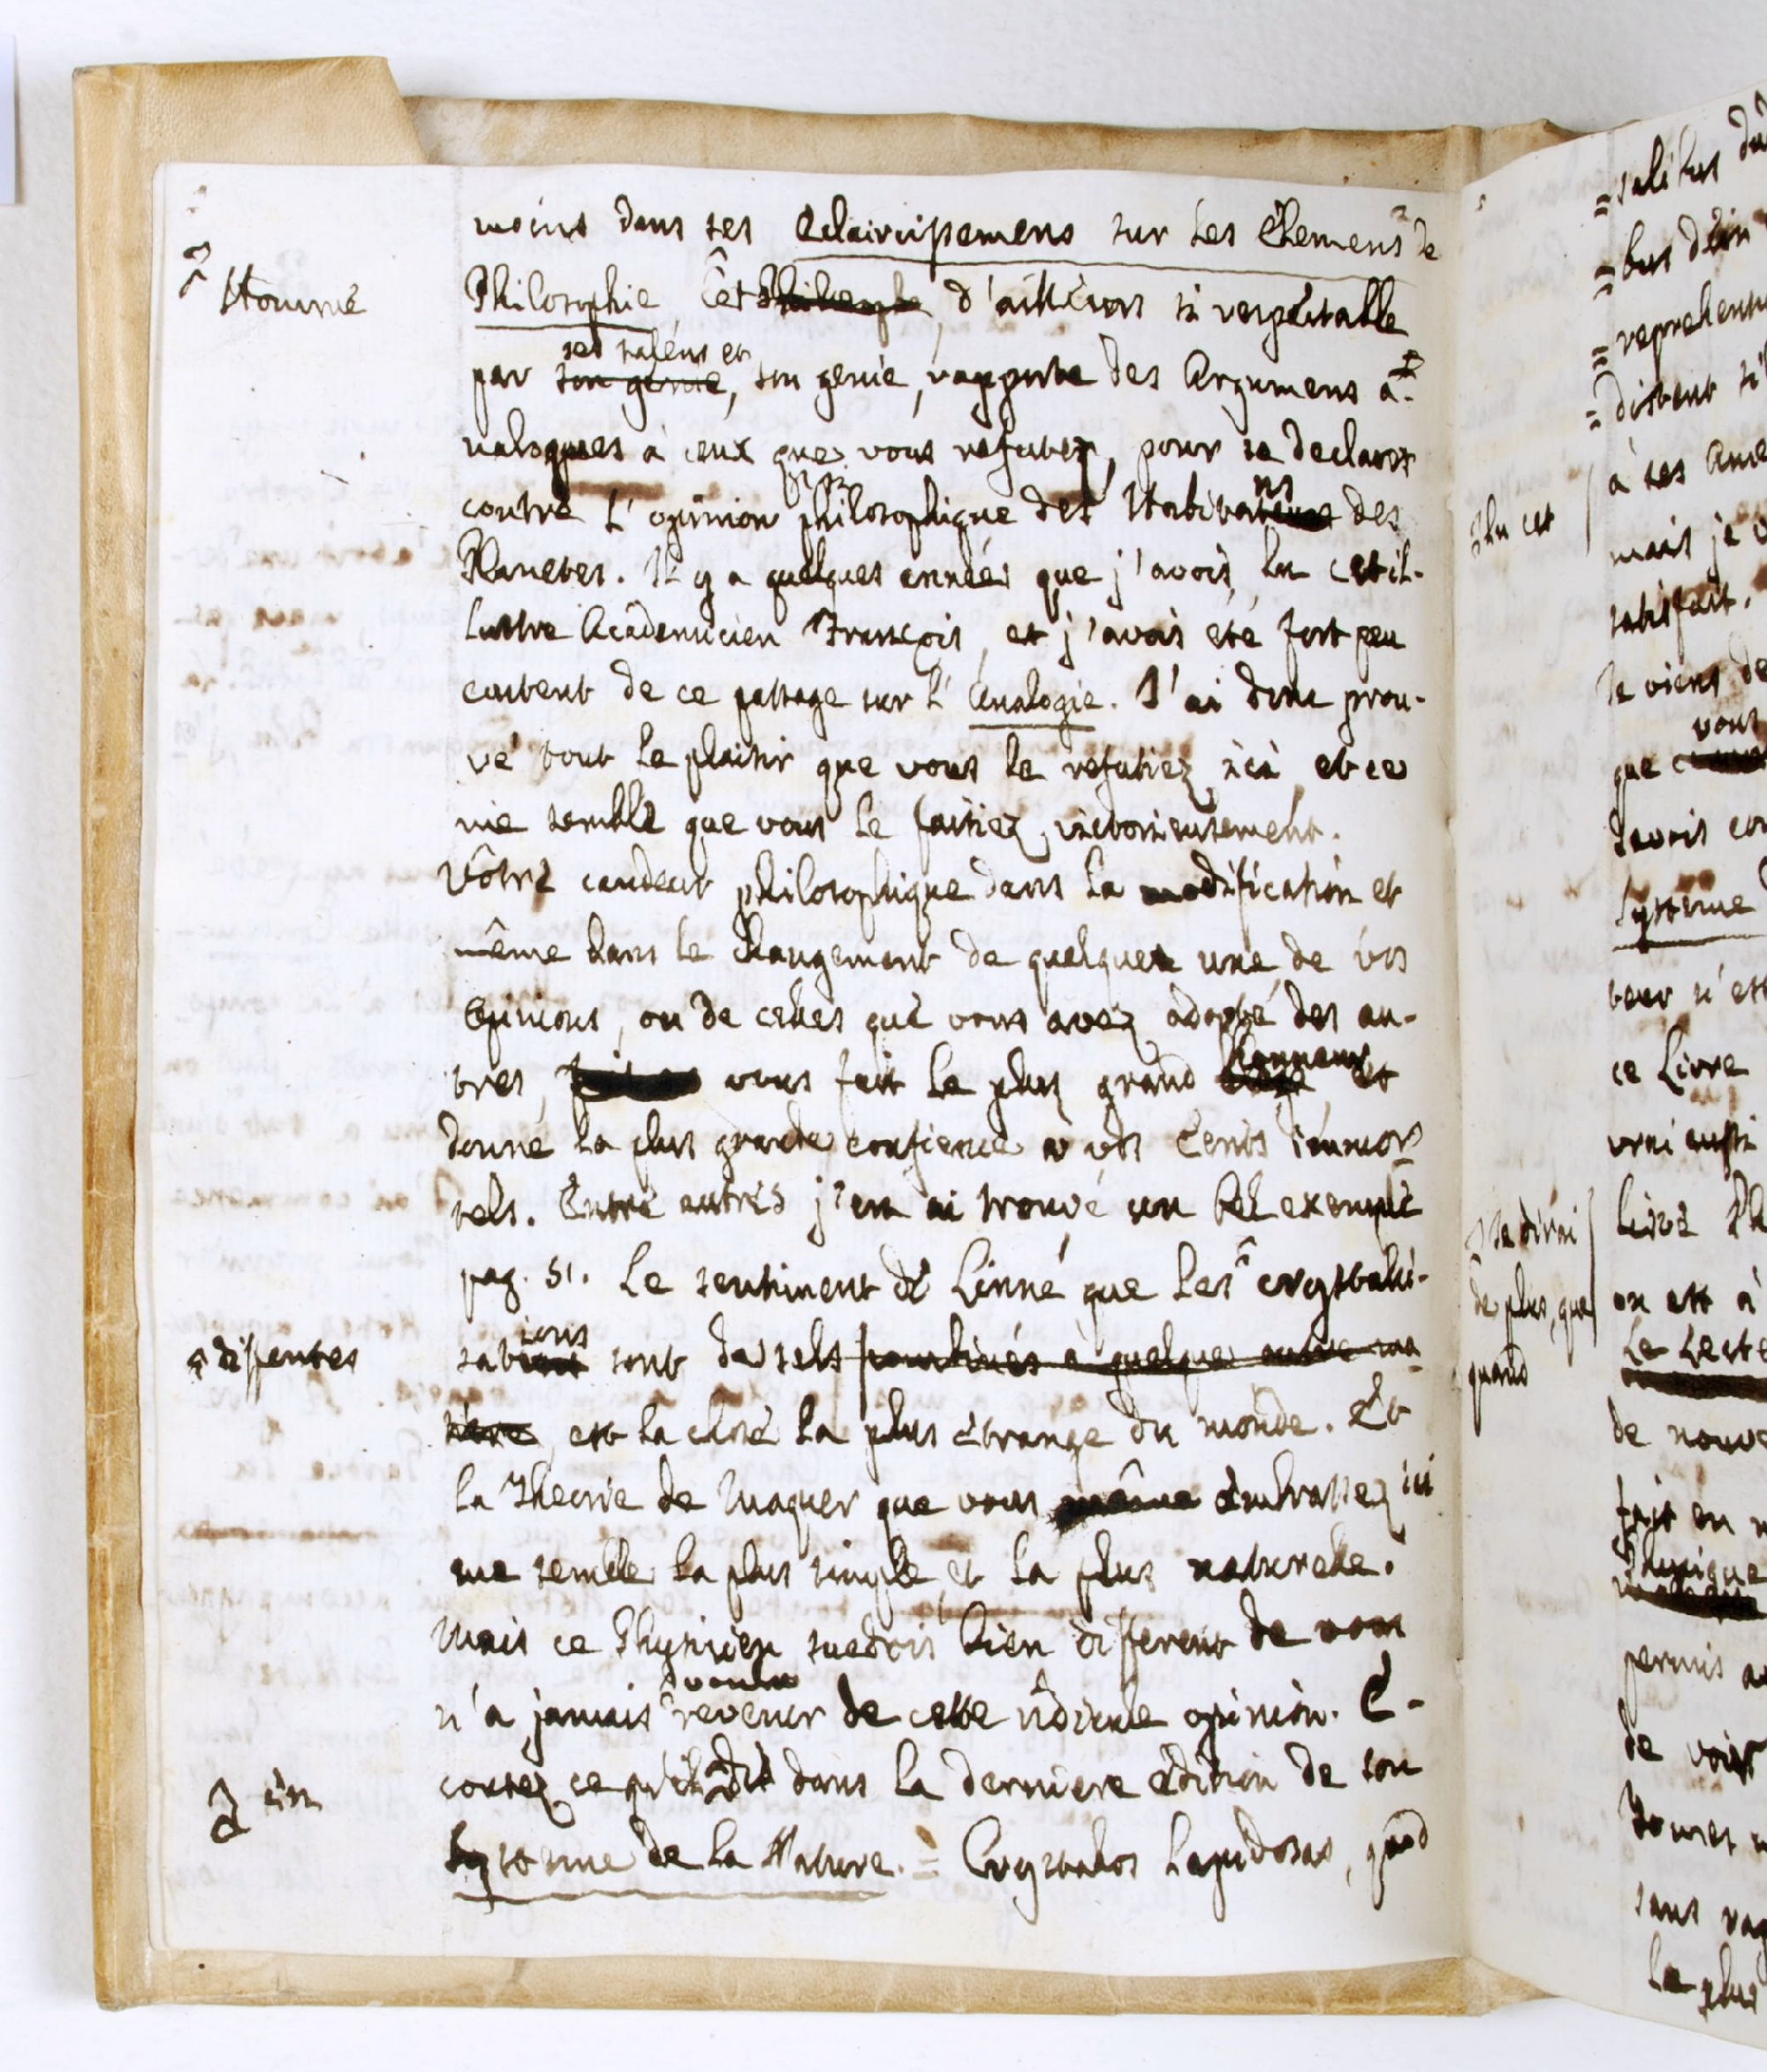 moins dans ses Eclaircissemens sur les Elemens de
^ Homme
Philosophie Cet ^ Philosophe, d'ailleurs si respectable
ses talens et
par son genie, son genie, rapporte des Argumens a-
nalogues à ceux que vous refutez, pour se declarer
contre l'opinion philosophique des Habitans des
Planetes. Il y a quelques années que j'avois lu cet il-
lustre Academicien François, et j'avois été fort peu
content de ce passage sur l'Analogie. J'ai donc prou-
vé tout le plaisir que vous le refutiez ici, et ce
me semble que vous le faisiez victorieusement.
Vôtre candeur philosophique dans la modification et
même dans le changement de quelque une de vos
Opinions, ou de celles que vous avez adopté des au-
honneur
tres, vous fait le plus grand et
donne la plus grande confience à vos Ecrits immor-
tels. Entre autres j'en ai trouvé un bel exemple
pag. 51. Le sentiment de Linné que les ^ crystali-
^ dissentes
ions
sations sont de sels fournies à quelque autre ma-
tiere, est la chose la plus étrange du monde. Et
la Theorie de Maquer que vous même embrassez ici
me semble la plus simple et la plus naturelle.
Mais ce Physicien suedois bien different de vous
voulu
n'a jamais ^ revenir de cette ridicule opinion. E-
coutez ce qu'il dit dans la derniere edition de son
Systeme de la Nature. = Crystallos lapidosas, quod
salibus
= bus
= reprehen
= distent
à ses
Plu est
mais je
satisfait.
Je viens de
vous
que
savois
Systeme
teur n'est
ce Livre
vrai aussi
^ Je dirai
de plus, que
quand
livre
on est à
Le Lecte
de nouve
fait en
Physique
permis
de voir
sans
le plus